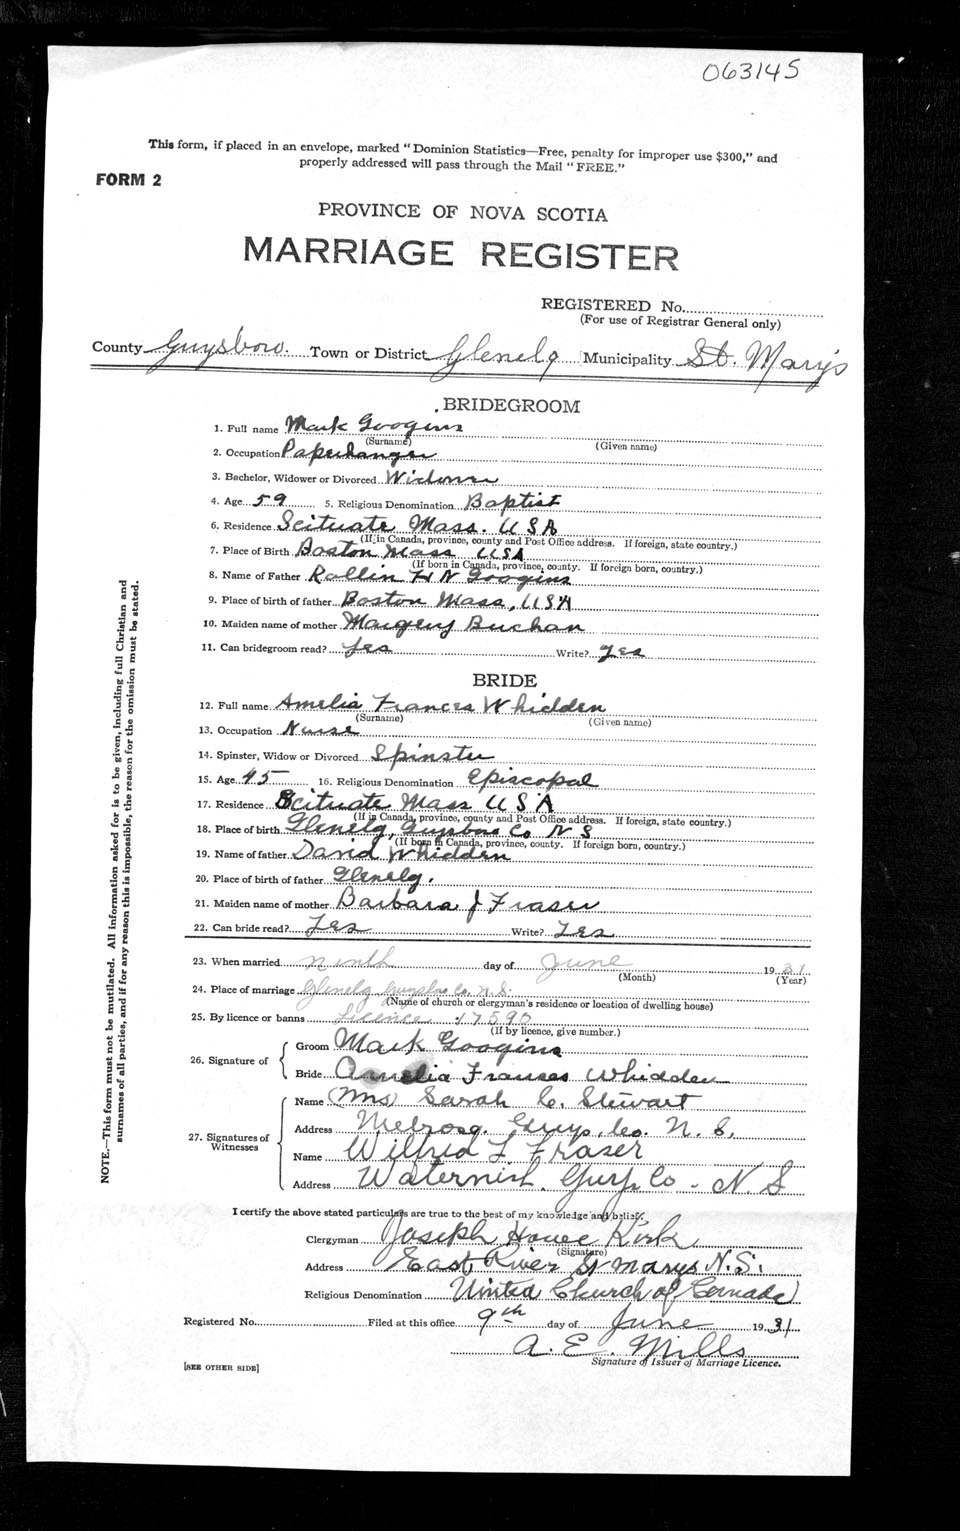 063145
This form, if placed in an envelope, marked "Dominion Statistics—Free, penalty for improper use $300," and
properly addressed will pass through the Mail "FREE."
FORM 2
PROVINCE OF NOVA SCOTIA
MARRIAGE REGISTER
REGISTERED No.
(For use of Registrar General only)
County Guysboro. Town or District Glenelg Municipality St. Mary's
BRIDEGROOM
1. Full name Mark Googins
(Surname) (Given name)
2. Occupation Paperhanger
3. Bachelor, Widower or Divorced Widower
4. Age 59 5. Religious Denomination Baptist
6. Residence Scituate Mass. USA
(If in Canada, province, county and Post Office address. If foreign, state country.)
7. Place of Birth Boston Mass USA
(If born in Canada, province, county. If foreign born, country.)
8. Name of Father Rollin H N Googins
9. Place of birth of father Boston Mass, USA
10. Maiden name of mother Margery Buchan
11. Can bridegroom read? Yes Write? Yes
BRIDE
12. Full name Amelia Frances Whidden
(Surname) (Given name)
13. Occupation Nurse
14. Spinster, Widow or Divorced Spinster
15. Age 45 16. Religious Denomination Episcopal
17. Residence Scituate Mass USA
(If in Canada, province, county and Post Office address. If foreign, state country.)
18. Place of birth Glenelg, Guysboro Co N S
(If born in Canada, province, county. If foreign born, country.)
19. Name of father David Whidden
20. Place of birth of father Glenelg.
21. Maiden name of mother Barbara J Fraser
22. Can bride read? Yes Write? Yes
23. When married ninth day of June 1931
(Month) (Year)
24. Place of marriage Glenelg Guysboro Co. N.S.
(Name of church or clergyman's residence or location of dwelling house)
25. By licence or banns Licence 17590
(If by licence, give number.)
26. Signature of
Groom Mark Googins
Bride Amelia Frances Whidden
27. Signatures of Witnesses
Name (Mrs) Sarah C. Stewart
Address Melrose. Guys. Co. N. S.
Name Wilfred L Fraser
Address Waternish. Guys. Co. N S
I certify the above stated particulars are true to the best of my knowledge and belief.
Clergyman Joseph Howe Kirk
(Signature)
Address East River St Marys N.S.
Religious Denomination United Church of Canada
Registered No. Filed at this office 9th day of June 1931
A. E. Mills
Signature of Issuer of Marriage Licence.
[SEE OTHER SIDE]
NOTE.—This form must not be mutilated. All information asked for is to be given, including full Christian and
surnames of all parties, and if for any reason this is impossible, the reason for the omission must be stated.